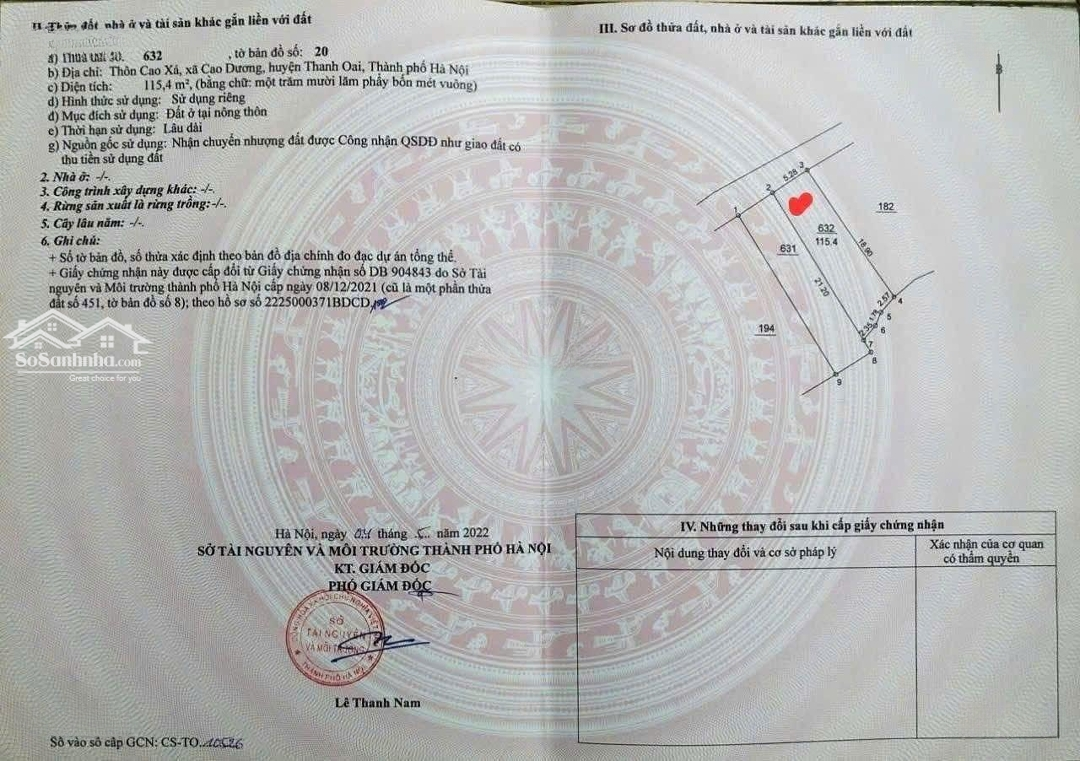 II. Thửa đất nhà ở và tài sản khác gắn liền với đất
a) Thửa đất số: 632, tờ bản đồ số: 20
b) Địa chỉ: Thôn Cao Xá, xã Cao Dương, huyện Thanh Oai, Thành phố Hà Nội
c) Diện tích: 115,4 m², (bằng chữ: một trăm mười lăm phẩy bốn mét vuông)
d) Hình thức sử dụng: Sử dụng riêng
đ) Mục đích sử dụng: Đất ở tại nông thôn
e) Thời hạn sử dụng: Lâu dài
g) Nguồn gốc sử dụng: Nhận chuyển nhượng đất được Công nhận QSDĐ như giao đất có
thu tiền sử dụng đất
2. Nhà ở: -/-.
3. Công trình xây dựng khác: -/-.
4. Rừng sản xuất là rừng trồng:-/-.
5. Cây lâu năm: -/-.
6. Ghi chú:
+ Số tờ bản đồ, số thửa xác định theo bản đồ địa chính đo đạc dự án tổng thể.
+ Giấy chứng nhận này được cấp đổi từ Giấy chứng nhận số DB 904843 do Sở Tài
nguyên và Môi trường thành phố Hà Nội cấp ngày 08/12/2021 (cũ là một phần thửa
đất số 451, tờ bản đồ số 8); theo hồ sơ số 2225000371BDCD
SoSanhnha.com
Great choice for you
Hà Nội, ngày 04 tháng 5 năm 2022
SỞ TÀI NGUYÊN VÀ MÔI TRƯỜNG THÀNH PHỐ HÀ NỘI
KT. GIÁM ĐỐC
PHÓ GIÁM ĐỐC
CỘNG HÒA XÃ HỘI CHỦ NGHĨA VIỆT
SỞ
TÀI NGUYÊN
VÀ MÔI TRƯỜNG
THÀNH PHỐ HÀ NỘI
Lê Thanh Nam
Số vào sổ cấp GCN: CS-TO.10526
III. Sơ đồ thửa đất, nhà ở và tài sản khác gắn liền với đất
B
3
5.28
2
1
182
632
115.4
631
18.90
21.20
2.57
4
1.78
5
2.35
6
194
7
8
9
IV. Những thay đổi sau khi cấp giấy chứng nhận
Nội dung thay đổi và cơ sở pháp lý
Xác nhận của cơ quan
có thẩm quyền